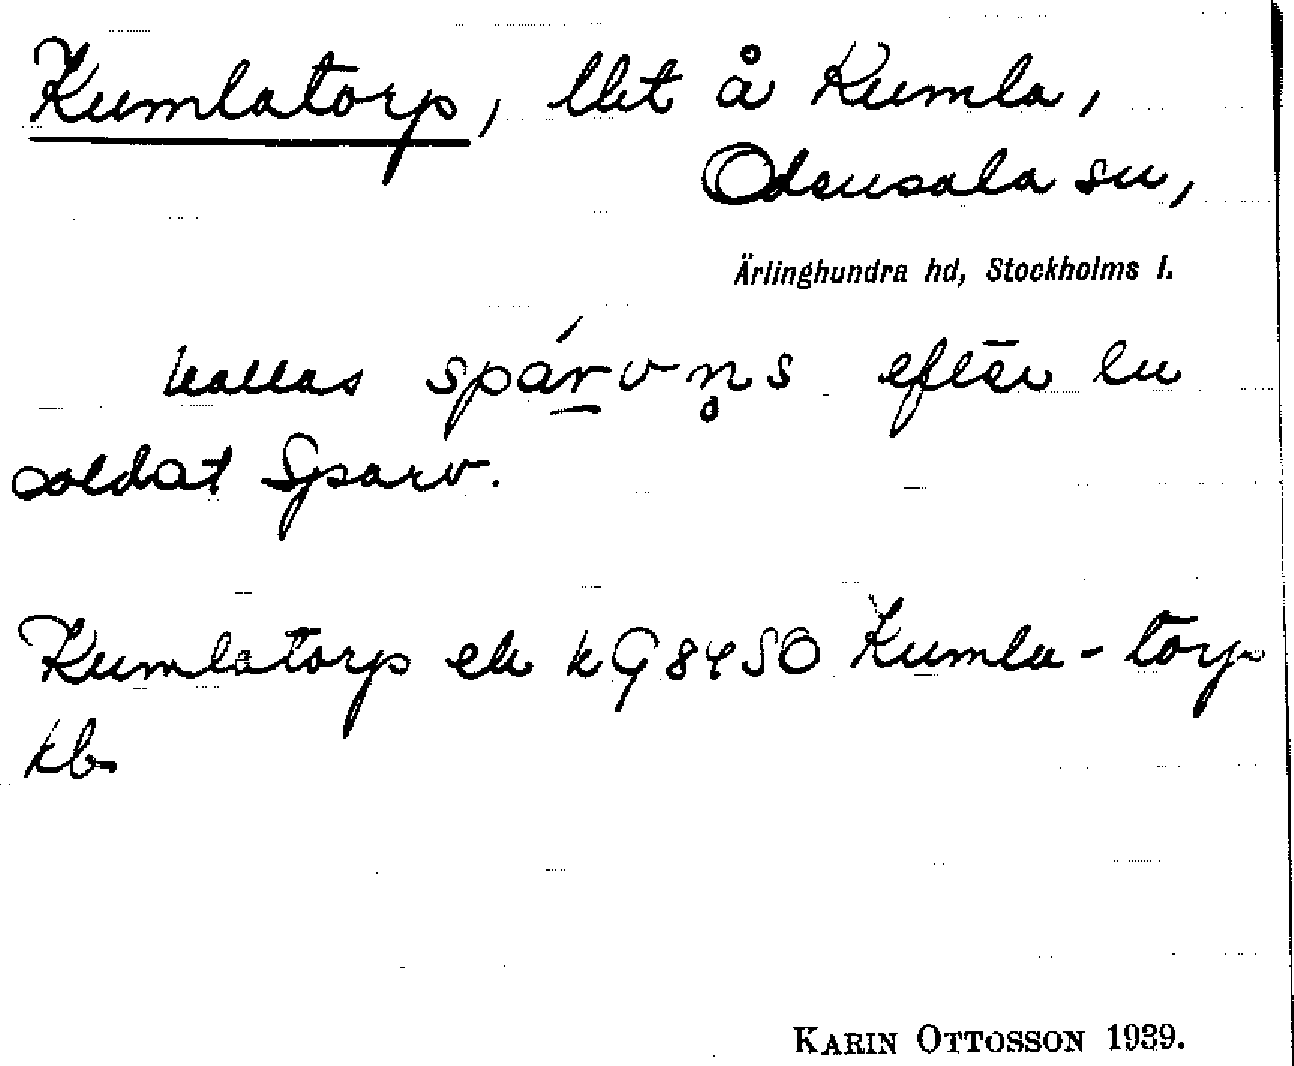 Kumlatorp, lht å Kumla,
Odensala sn,
Ärlinghundra hd, Stockholms l.
kallas spárvn̥s efter en
soldat Sparv.
Kumlatorp ek kG8450 Kumla-torp
kb
KARIN OTTOSSON 1939.